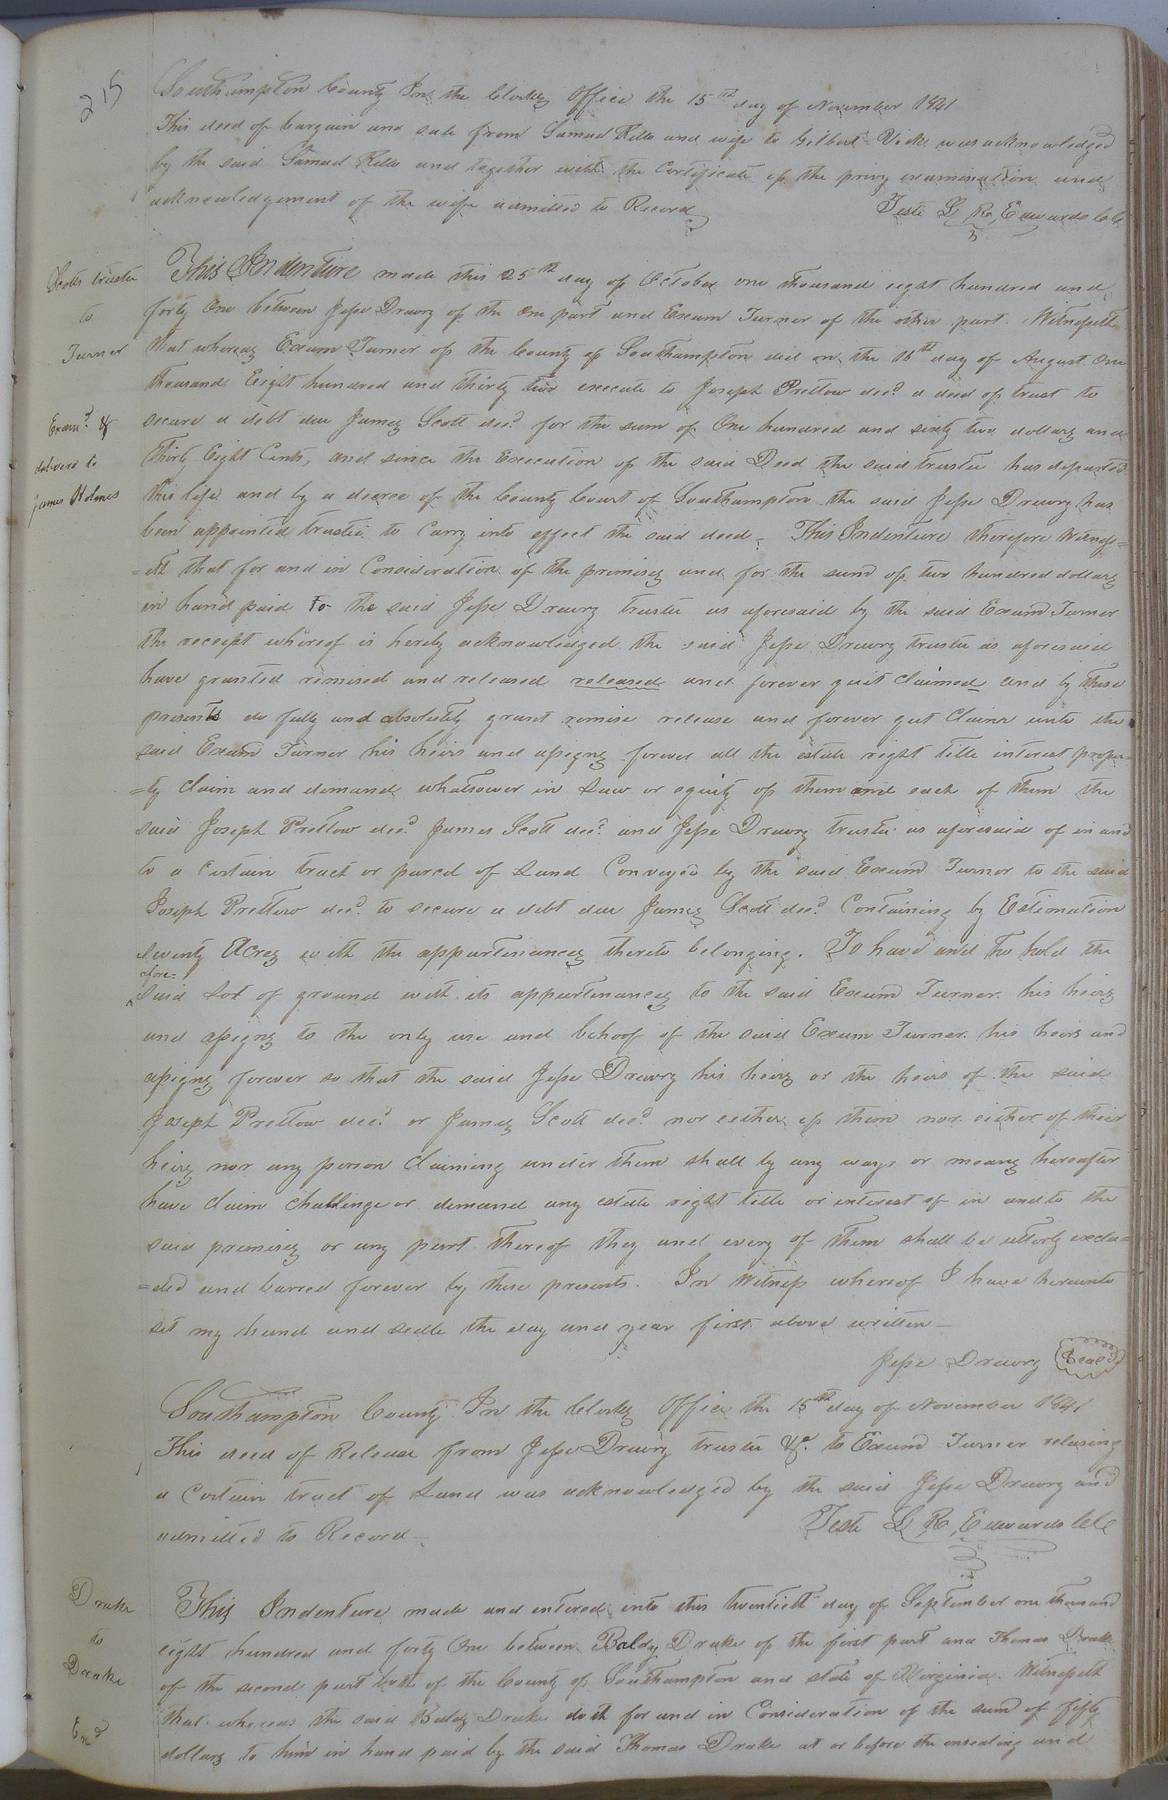 215
Southampton County In the Clerks Office the 15th day of November 1841
This deed of bargain and sale from Samuel Kello and wife to Gilbert Vick was acknowledged
by the said Samuel Kello and together with the Certificate of the privy examination and
acknowledgement of the wife admitted to Record
Teste L R Edwards Clk
Scotts trustee
to
Turner
Exam.d &
delivered to
James Holmes
This Indenture made this 25th day of October one thousand eight hundred and
forty One between Jesse Drewry of the one part and Exum Turner of the other part. Witnesseth
that whereas Exum Turner of the County of Southampton did on the 18th day of August One
thousand Eight hundred and thirty two execute to Joseph Prettow decd a deed of trust to
secure a debt due James Scott decd for the sum of One hundred and sixty two dollars and
Thirty Eight Cents, and since the Execution of the said Deed the said trustee has departed
this life and by a decree of the County Court of Southampton the said Jesse Drewry has
been appointed trustee to Carry into effect the said deed - This Indenture therefore Witness=
=eth that for and in Consideration of the premises and for the sum of two hundred dollars
in hand paid to the said Jesse Drewry trustee as aforesaid by the said Exum Turner
the receipt whereof is hereby acknowledged the said Jesse Drewry trustee as aforesaid
have granted remised and released released and forever quit claimed and by these
presents do fully and absolutely grant remise release and forever quit Claim unto the
said Exum Turner his heirs and assigns forever all the estate right title interest proper=
=ty Claim and demand whatsoever in Law or equity of them and each of them the
said Joseph Prettow decd James Scott decd and Jesse Drewry trustee as aforesaid of in and
to a certain tract or parcel of Land Conveyed by the said Exum Turner to the said
Joseph Prettow decd to secure a debt due James Scott decd Containing by Estimation
seventy Acres with the appurtenances thereto belonging. To have and to hold the
afore-
said Lot of ground with its appurtenances to the said Exum Turner his heirs
and assigns to the only use and behoof of the said Exum Turner his heirs and
assigns forever so that the said Jesse Drewry his heirs or the heirs of the said
Joseph Prettow decd or James Scott decd nor either of them nor either of their
heirs nor any person Claiming under them shall by any ways or means hereafter
have Claim Challenge or demand any estate right title or interest of in and to the
said premises or any part thereof they and every of them shall be utterly exclu=
=ded and barred forever by these presents. In Witness whereof I have hereunto
set my hand and seale the day and year first above written -
Jesse Drewry Seal
Southampton County In the Clerks Office the 15th day of November 1841
This deed of Release from Jesse Drewry trustee &c. to Exum Turner relesing
a Certain tract of Land was acknowledged by the said Jesse Drewry and
admitted to Record -
Teste L R Edwards Clk
Drake
to
Drake
Exd
This Indenture made and entered into this twentieth day of September one thousand
eight hundred and forty One between Baldy Drake of the first part and Thomas Drake
of the second part both of the County of Southampton and state of Virginia. Witnesseth
that whereas the said Baldy Drake doth for and in Consideration of the sum of fifty
dollars to him in hand paid by the said Thomas Drake at or before the ensealing and